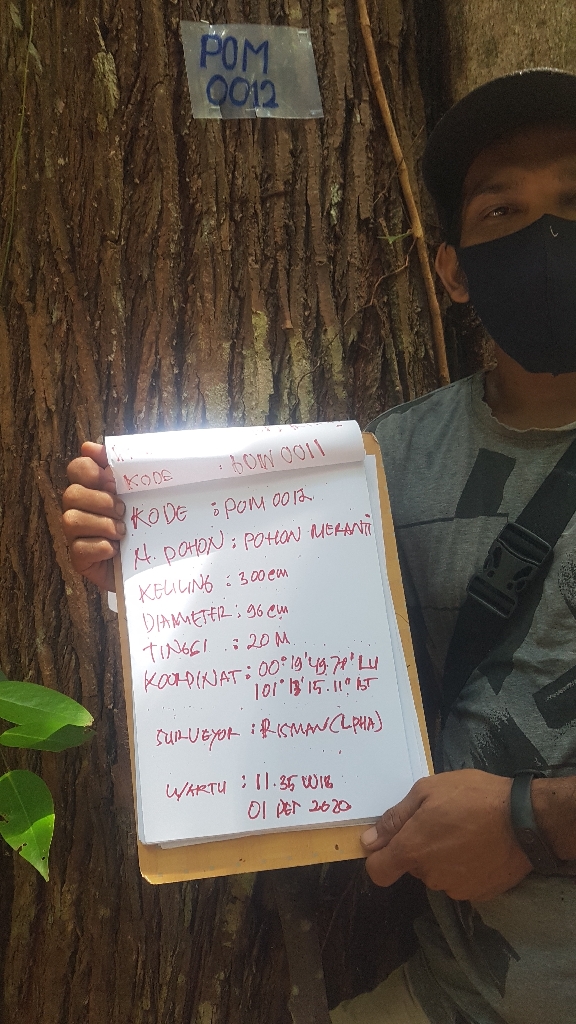 POM
0012
KODE : POM 0011
KODE : POM 0012
N. POHON : POHON MERANTI
KELILING : 300 cm
DIAMETER : 96 cm
TINGGI : 20 M
KOORDINAT : 00° 19' 49.79" LU
101° 13' 15.11" BT
SURVEYOR : RISMAN (ALPHA)
WAKTU : 11.35 WIB
01 DES 2020